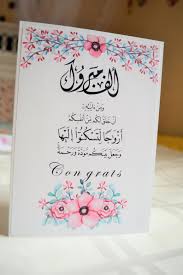 ألف مبروك
ومن آياته
أن خلق لكم من أنفسكم
أزواجا لتسكنوا إليها
وجعل بينكم مودة ورحمة
Congrats